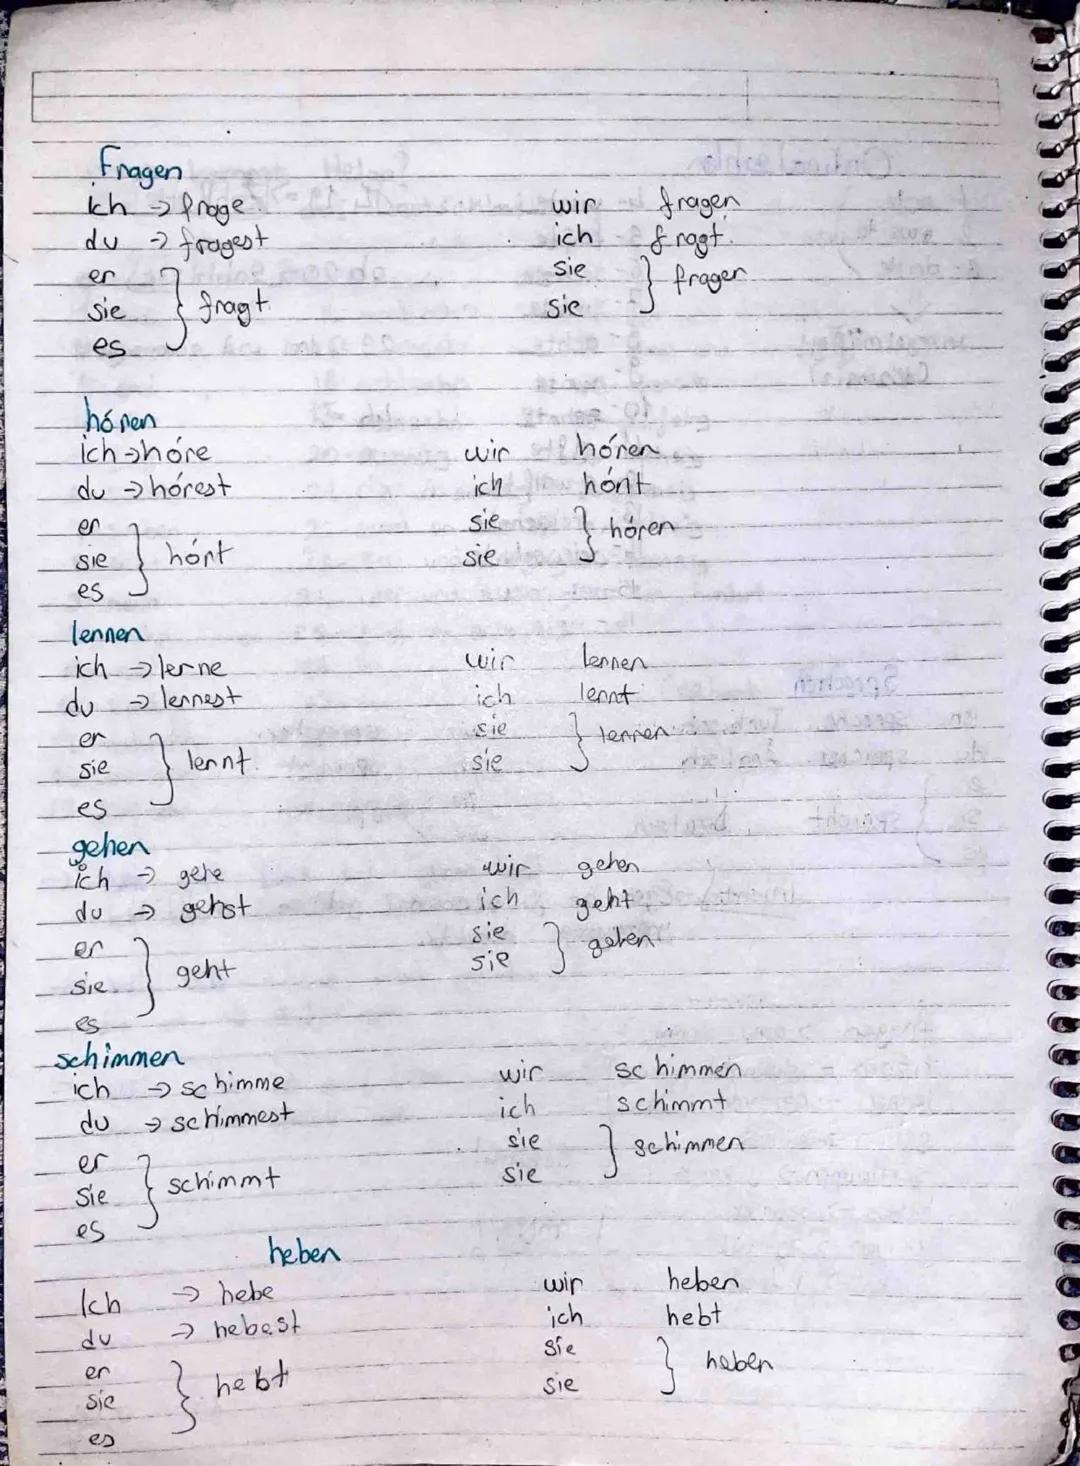 Fragen
ich → frage wir fragen
du → fragest ich fragt.
er sie
sie } fragt. sie } fragen
es
hóren
ich → hóre wir hóren
du → hórest ich hórt
er sie
sie } hórt sie } hóren
es
lernen
ich → lerne wir lernen
du → lernest ich lernt
er sie
sie } lernt. sie } lernen
es
gehen
ich → gehe wir gehen
du → gehst ich geht
er sie
sie } geht sie } gehen
es
schimmen
ich → schimme wir schimmen
du → schimmest ich schimmt
er sie
sie } schimmt sie } schimmen
es
heben
Ich → hebe wir heben
du → hebest ich hebt
er sie
sie } hebt sie } heben
es